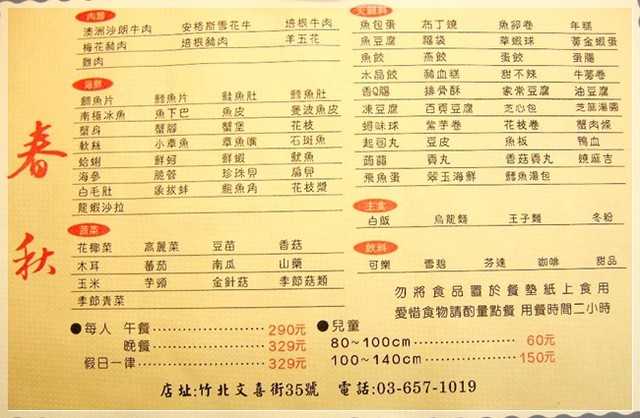 肉類
澳洲沙朗牛肉 安格斯雪花牛 培根牛肉
梅花豬肉 培根豬肉 羊五花
雞肉
海鮮
鯛魚片 鱈魚片 鮭魚肚 鱈魚肚
南極冰魚 魚下巴 魚皮 曼波魚皮
蟹身 蟹腳 蟹堡 花枝
軟絲 小章魚 章魚嘴 石斑魚
蛤蜊 鮮蚵 鮮蝦 魷魚
海參 脆管 珍珠貝 扇貝
白毛肚 象拔蚌 鮑魚角 花枝漿
龍蝦沙拉
蔬菜
花椰菜 高麗菜 豆苗 香菇
木耳 蕃茄 南瓜 山藥
玉米 芋頭 金針菇 季節菇類
季節青菜
火鍋料
魚包蛋 布丁燒 魚卵卷 年糕
魚豆腐 福袋 草蝦球 黃金蝦蛋
魚餃 燕餃 蛋餃 蛋腸
水晶餃 豬血糕 甜不辣 牛蒡卷
香Q腸 排骨酥 家常豆腐 油豆腐
凍豆腐 百頁豆腐 芝心包 芝麻湯圓
蟳味球 紫芋卷 花枝卷 蟹肉條
起司丸 豆皮 魚板 鴨血
蒟蒻 貢丸 香菇貢丸 燒麻吉
飛魚蛋 翠玉海鮮 鱈魚湯包
主食
白飯 烏龍麵 王子麵 冬粉
飲料
可樂 雪碧 芬達 咖啡 甜品
勿將食品置於餐墊紙上食用
愛惜食物請酌量點餐 用餐時間二小時
春秋
●每人 午餐 290元
晚餐 329元
假日一律 329元
●兒童
80~100cm 60元
100~140cm 150元
店址:竹北文喜街35號 電話:03-657-1019